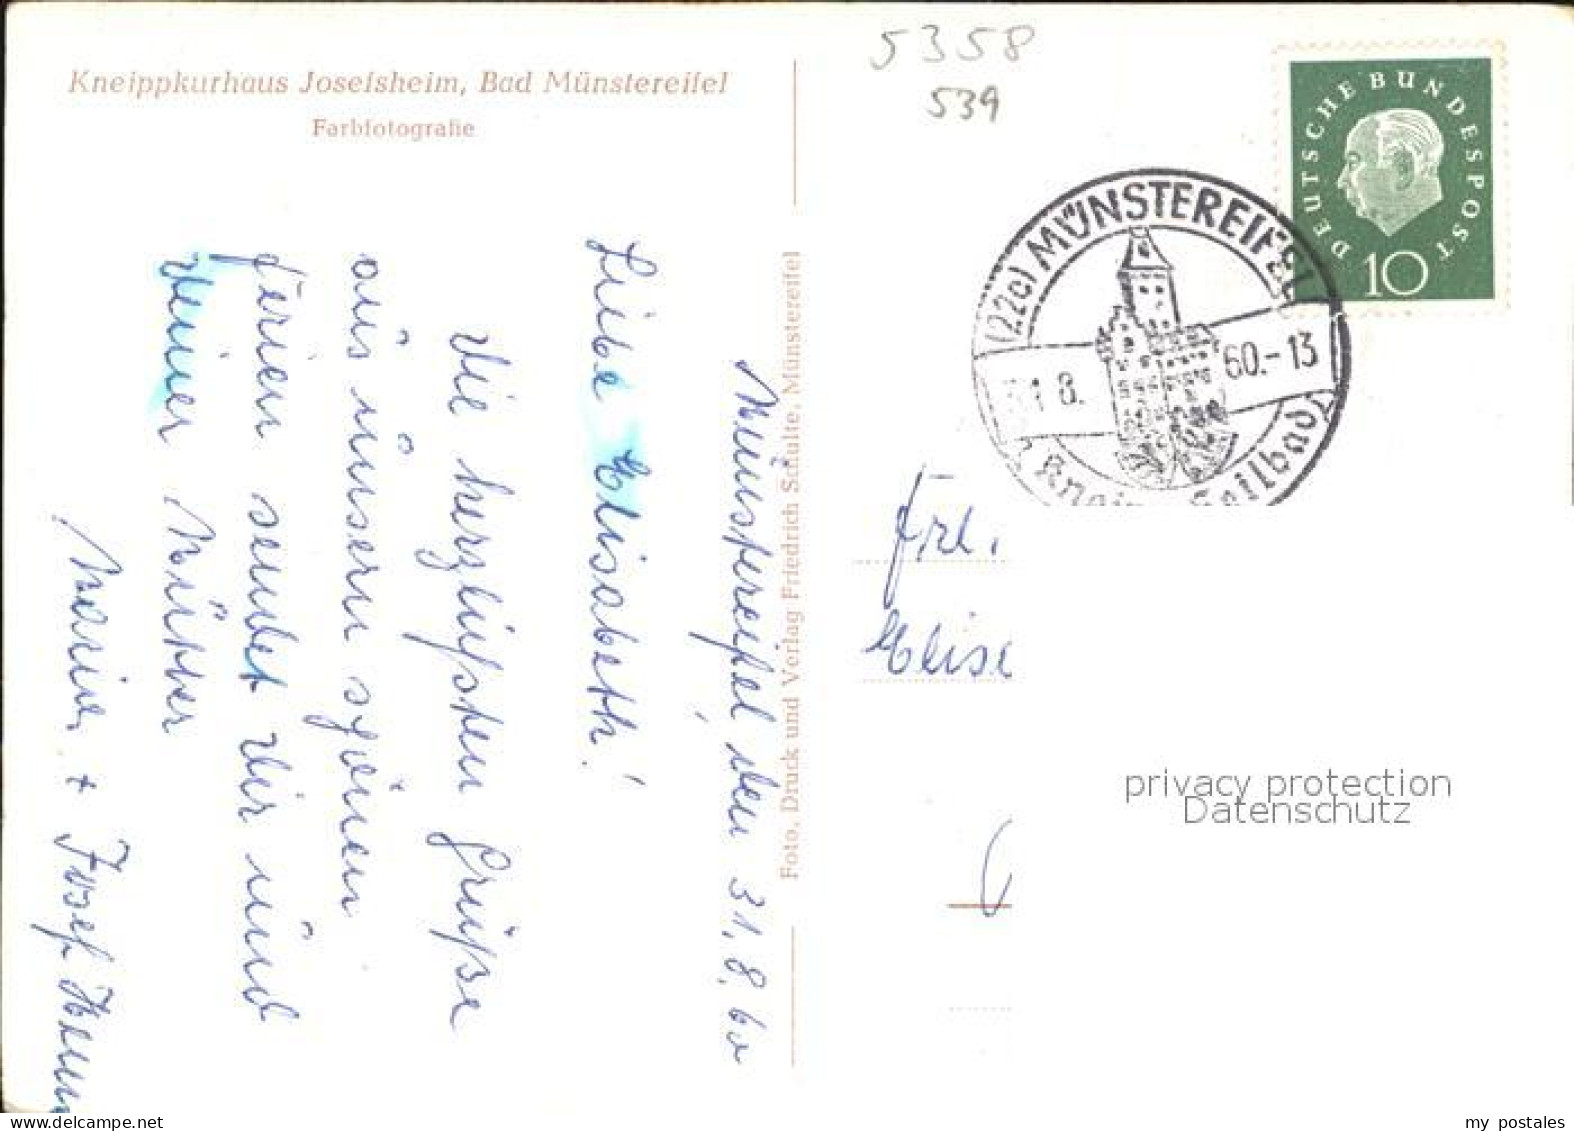 Kneippkurhaus Josefsheim, Bad Münstereifel
Farbfotografie
Münstereifel, den 31.8.60
Liebe Elisabeth!
die herzlichsten Grüße
aus unsern schönen
Ferien sendet Dir und
Deiner Mutter
Maria + Josef
Foto, Druck und Verlag Friedrich Schulte, Münstereifel
5358
539
DEUTSCHE BUNDESPOST
10
(22c) MÜNSTEREIFEL
31 8. 60.-13
Kneipp Heilbad
Frl.
Elise
privacy protection
Datenschutz
my postales